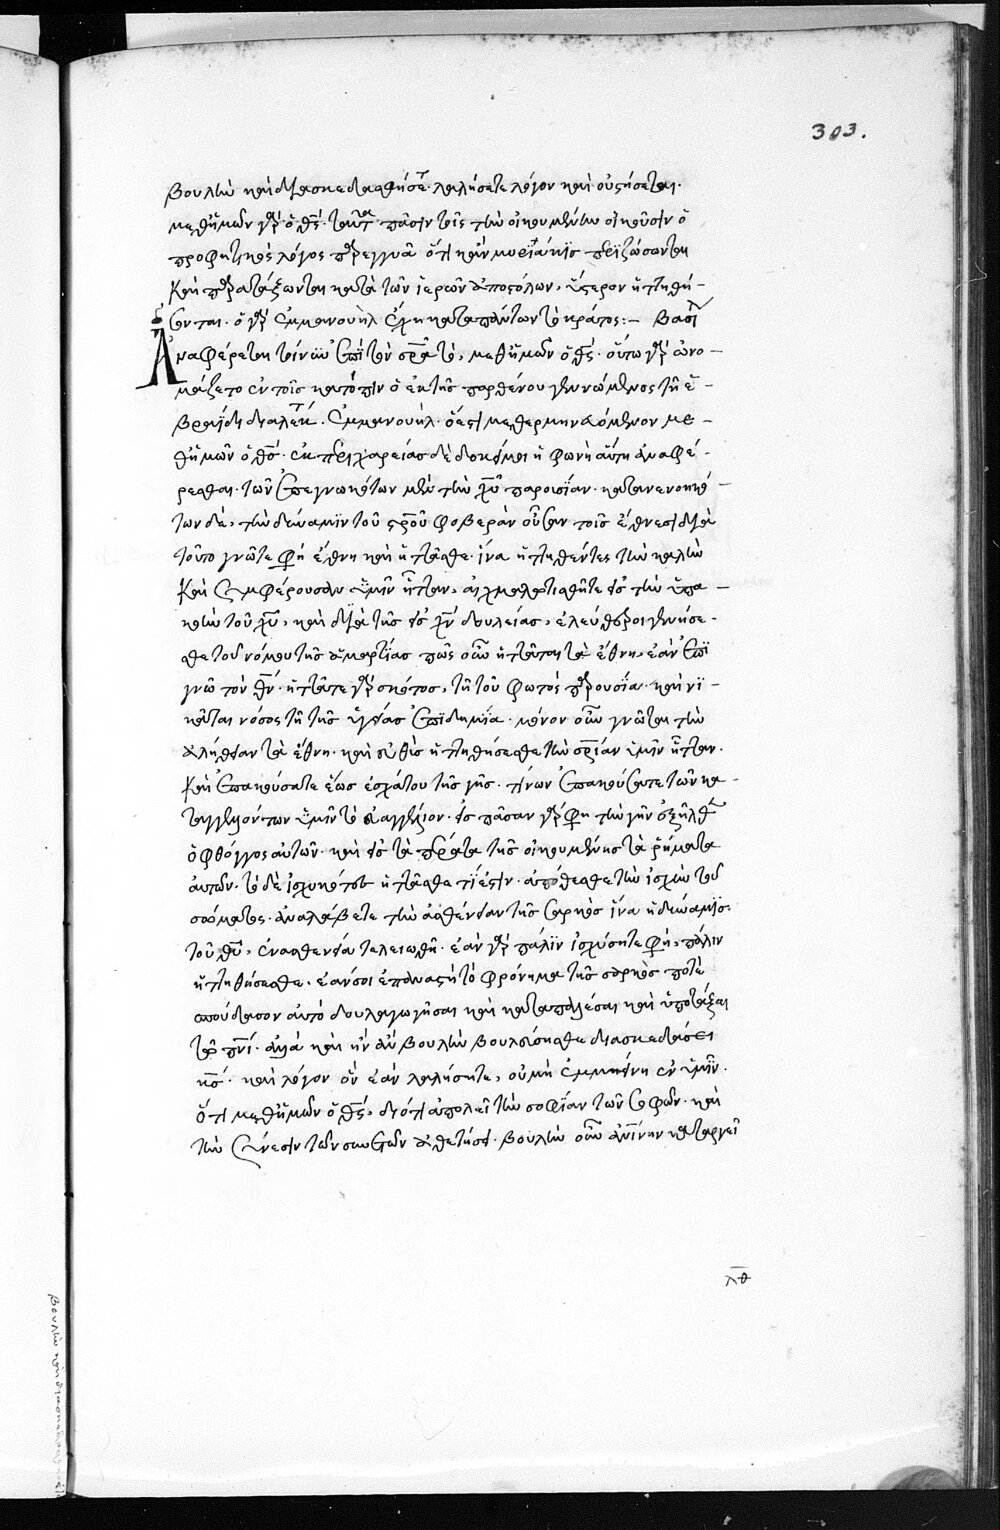 303.
βουλὴν καὶ διασκεδασθήσετ· λαλήσετε λόγον καὶ οὐ στήσεται·
μεθ' ἡμῶν γὰρ ὁ θς· ταῦτα πᾶσιν τοῖς τὴν οἰκουμένην οἰκοῦσιν ὁ
προφητικὸς λόγος παρεγγυᾶ ὅτι κἂν μυριάκϊς περϊζώσωνται
καὶ παρατάξωνται κατὰ τῶν ἱερῶν ἀποστόλων, ὕστερον ἡττηθή-
σονται· ὁ γὰρ ἐμμανουὴλ ἔχη κατὰ πάντων τὸ κράτος:- Βασιλ
Ἀναφέρεται τοίνυν ἐπὶ τὸν σρα τὸ, μεθ' ἡμῶν ὁ θς· οὕτω γὰρ ὠνο-
μάζετο ἐν τοῖς κατόπιν ὁ ἐκ τῆς παρθένου γεννώμενος τῆ ἑ-
βραΐδι διαλέκτ. ἐμμανουὴλ· ὅ ἐστι μεθερμηνευόμενον με-
θ' ἡμῶν ὁ θς· ἐκ περιχαρείας δὲ δοκεῖ μοι ἡ φωνὴ αὕτη ἀναφέ-
ρεσθαι· τῶν ἐπεγνωκότων μὲν τὴν χυ παρουσΐαν· κατανενοηκό-
των δὲ, τὴν δύναμϊν τοῦ στροῦ φοβερὰν οὖσαν τοῖς ἔθνεσι διὰ
τοῦτο γνῶτε φη ἔθνη καὶ ἡττᾶσθε· ἵνα ἡττηθέντες τὴν καλὴν
καὶ συμφέρουσαν ὑμῖν ἧτταν, αἰχμαλωτισθῆτε εἰς τὴν ὑπα-
κοὴν τοῦ χυ, καὶ διὰ τῆς εἰς χν δουλείας, ἐλεύθεροι γενήσε-
σθε τοῦ νόμου τῆς ἁμαρτίας πῶς οὖν ἡττᾶται τὰ ἔθνη, ἐὰν ἐπϊ
γνῶ τὸν θν· ἡττᾶται γὰρ σκότος, τῆ τοῦ φωτὸς παρουσΐα· καὶ νϊ-
κᾶται νόσος τῆ τῆς ὑγείας ἐπϊδημΐα· μόνον οὖν γνῶται τὴν
ἀλήθειαν τὰ ἔθνη· καὶ εὐθὺς ἡττηθήσεσθε τὴν σριαν ὑμῖν ἧτταν·
καὶ ἐπακούσατε ἕως ἐσχάτου τῆς γῆς· τίνων ἐπακούσατε τῶν κα-
ταγγελόντων ὑμῖν τὸ εὐαγγέλιον· εἰς πᾶσαν γὰρ φη τὴν γῆν ἐξῆλθεν
ὁ φθόγγος αὐτῶν· καὶ εἰς τὰ πέρατα τῆς οἰκουμένης τὰ ῥήματα
αὐτῶν· τὸ δὲ ἰσχυκότες ἡττᾶσθε τί ἐστιν· ἀπόθεσθε τὴν ἰσχὺν τοῦ
σώματος· ἀναλάβετε τὴν ἀσθένειαν τῆς σαρκὸς ἵνα ἡ δύναμϊς·
τοῦ θυ, ἐν ἀσθενεία τελειωθῆ· ἐὰν γὰρ πάλϊν ἰσχύσητε φη, πάλιν
ἡττηθήσεσθε· ἐάν σοι ἐπαναστῆ τὸ φρόνημα τῆς σαρκὸς ποτὲ
σπούδασον αὐτὸ δουλαγωγῆσαι καὶ καταπαλέσαι καὶ ὑποτάξαι
τῶ πνι· ἀλλὰ καὶ ἣν ἂν βουλὴν βουλεύσησθε διασκεδάσει
κς· καὶ λόγον ὃν ἐὰν λαλήσητε, οὐ μὴ ἐμμείνη ἐν ὑμῖν·
ὅτι μεθ' ἡμῶν ὁ θς, διότι ἀπολεῖ τὴν σοφΐαν τῶν σοφῶν· καὶ
τὴν σύνεσιν τῶν συνετῶν ἀθετήσει· βουλὴν οὖν ἐκείνην καταργεῖ
λθ